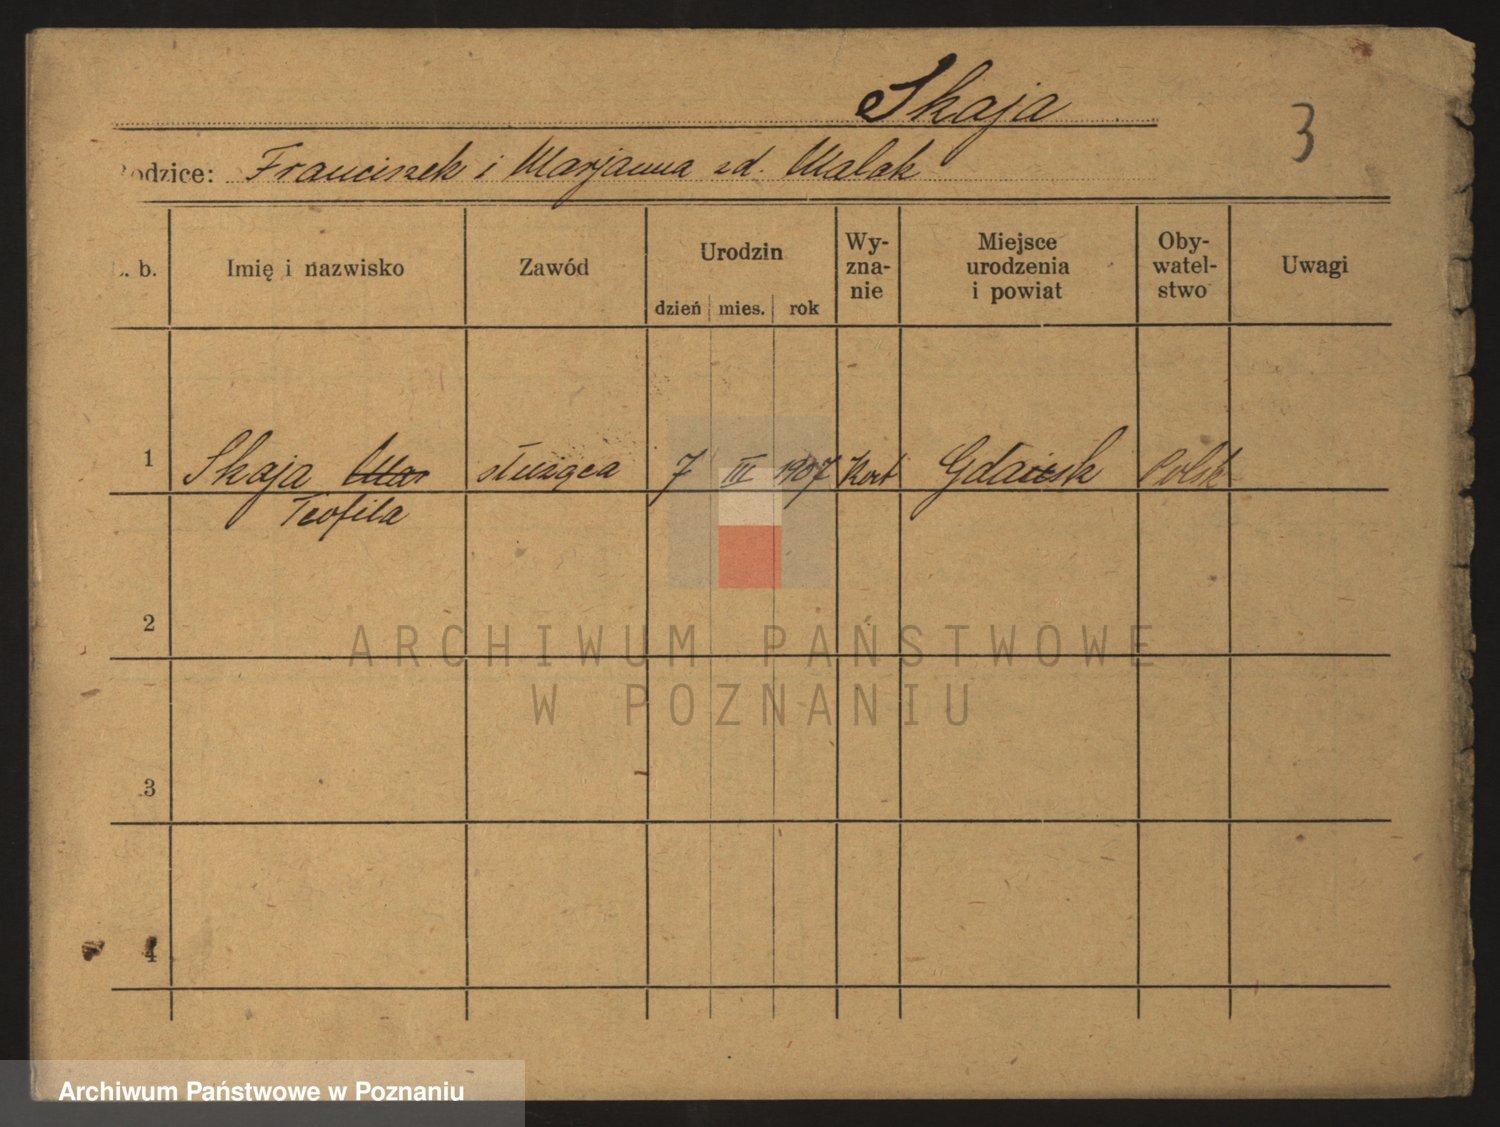 Skaja
3
Rodzice: Franciszek i Marjanna zd. Walak
L. b. Imię i nazwisko Zawód Urodzin dzień mies. rok Wy-zna-nie Miejsce urodzenia i powiat Oby-watel-stwo Uwagi
1 Skaja służąca 7 III 1907 Gdańsk Polsk
Teofila
2
ARCHIWUM PAŃSTWOWE
W POZNANIU
3
4
Archiwum Państwowe w Poznaniu